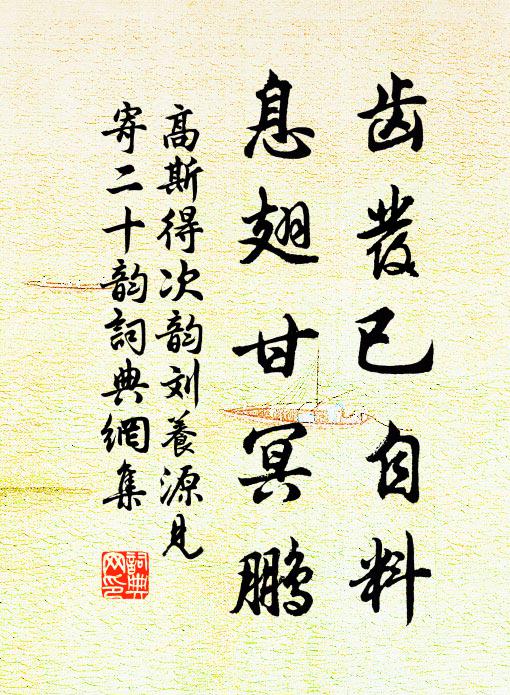 齿發已自料
息翅甘冥鵬
高斯得次韵刘養源見
寄二十韵詞典網集
詞典
网印